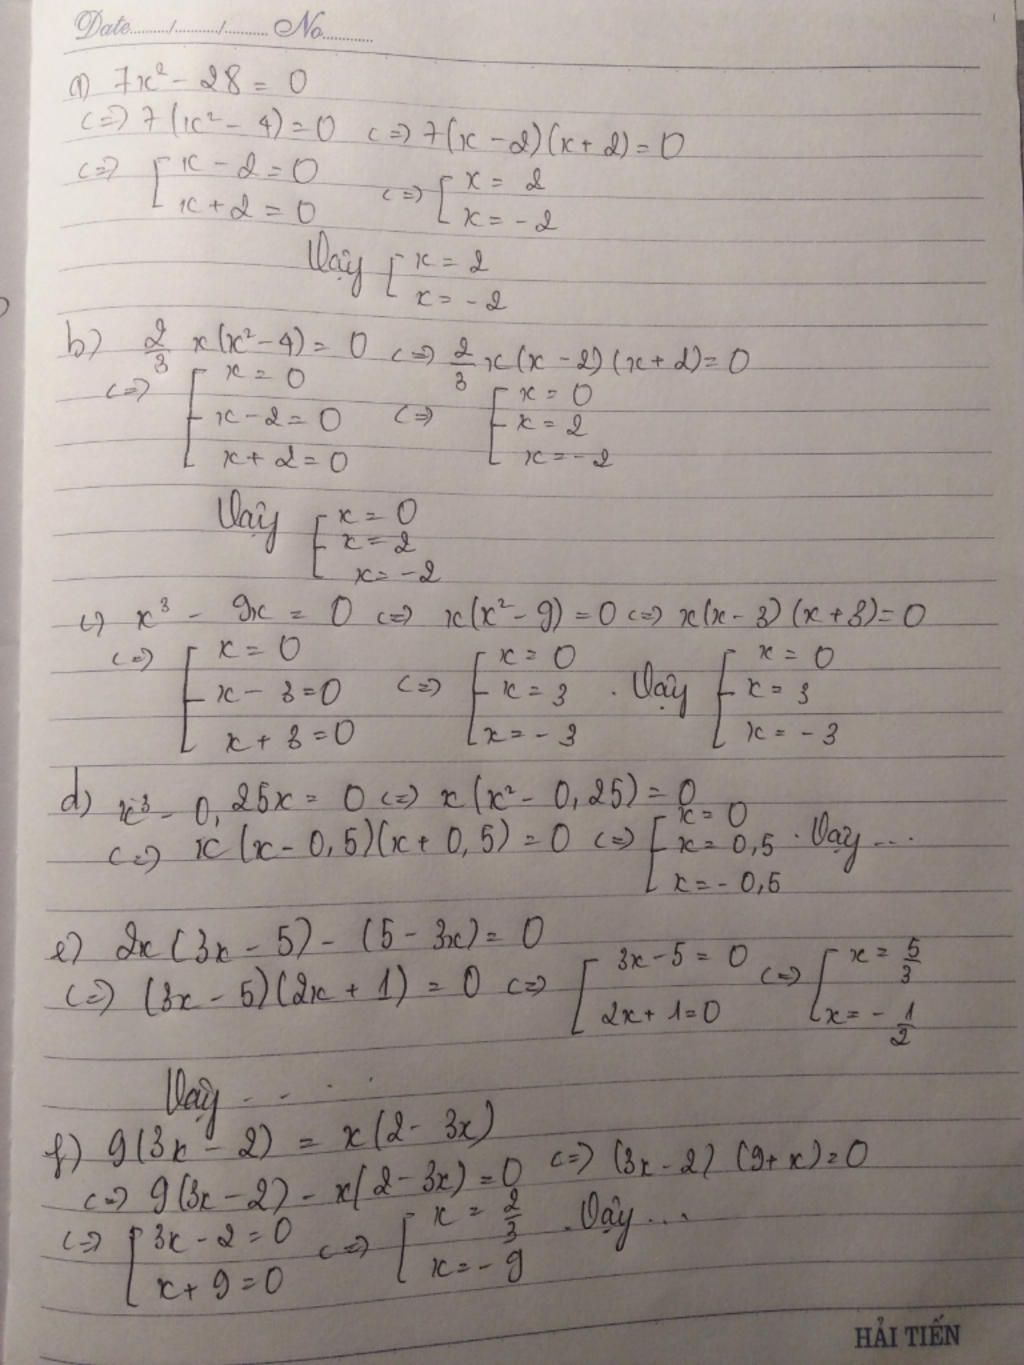 Date......./......./......... No...........
a) 7x² - 28 = 0
<=> 7(x² - 4) = 0 <=> 7(x - 2)(x + 2) = 0
<=> [ x - 2 = 0 <=> [ x = 2
x + 2 = 0 x = -2
Vậy [ x = 2
x = -2
b) 2/3 x(x² - 4) = 0 <=> 2/3 x(x - 2)(x + 2) = 0
<=> [ x = 0 <=> [ x = 0
x - 2 = 0 x = 2
x + 2 = 0 x = -2
Vậy [ x = 0
x = 2
x = -2
c) x³ - 9x = 0 <=> x(x² - 9) = 0 <=> x(x - 3)(x + 3) = 0
<=> [ x = 0 <=> [ x = 0 . Vậy [ x = 0
x - 3 = 0 x = 3 x = 3
x + 3 = 0 x = -3 x = -3
d) x³ - 0,25x = 0 <=> x(x² - 0,25) = 0
<=> x(x - 0,5)(x + 0,5) = 0 <=> [ x = 0
x = 0,5 . Vậy ...
x = -0,5
e) 2x(3x - 5) - (5 - 3x) = 0
<=> (3x - 5)(2x + 1) = 0 <=> [ 3x - 5 = 0 <=> [ x = 5/3
2x + 1 = 0 x = -1/2
Vậy ....
f) 9(3x - 2) = x(2 - 3x)
<=> 9(3x - 2) - x(2 - 3x) = 0 <=> (3x - 2)(9 + x) = 0
<=> [ 3x - 2 = 0 <=> [ x = 2/3 . Vậy ...
x + 9 = 0 x = -9
HẢI TIẾN